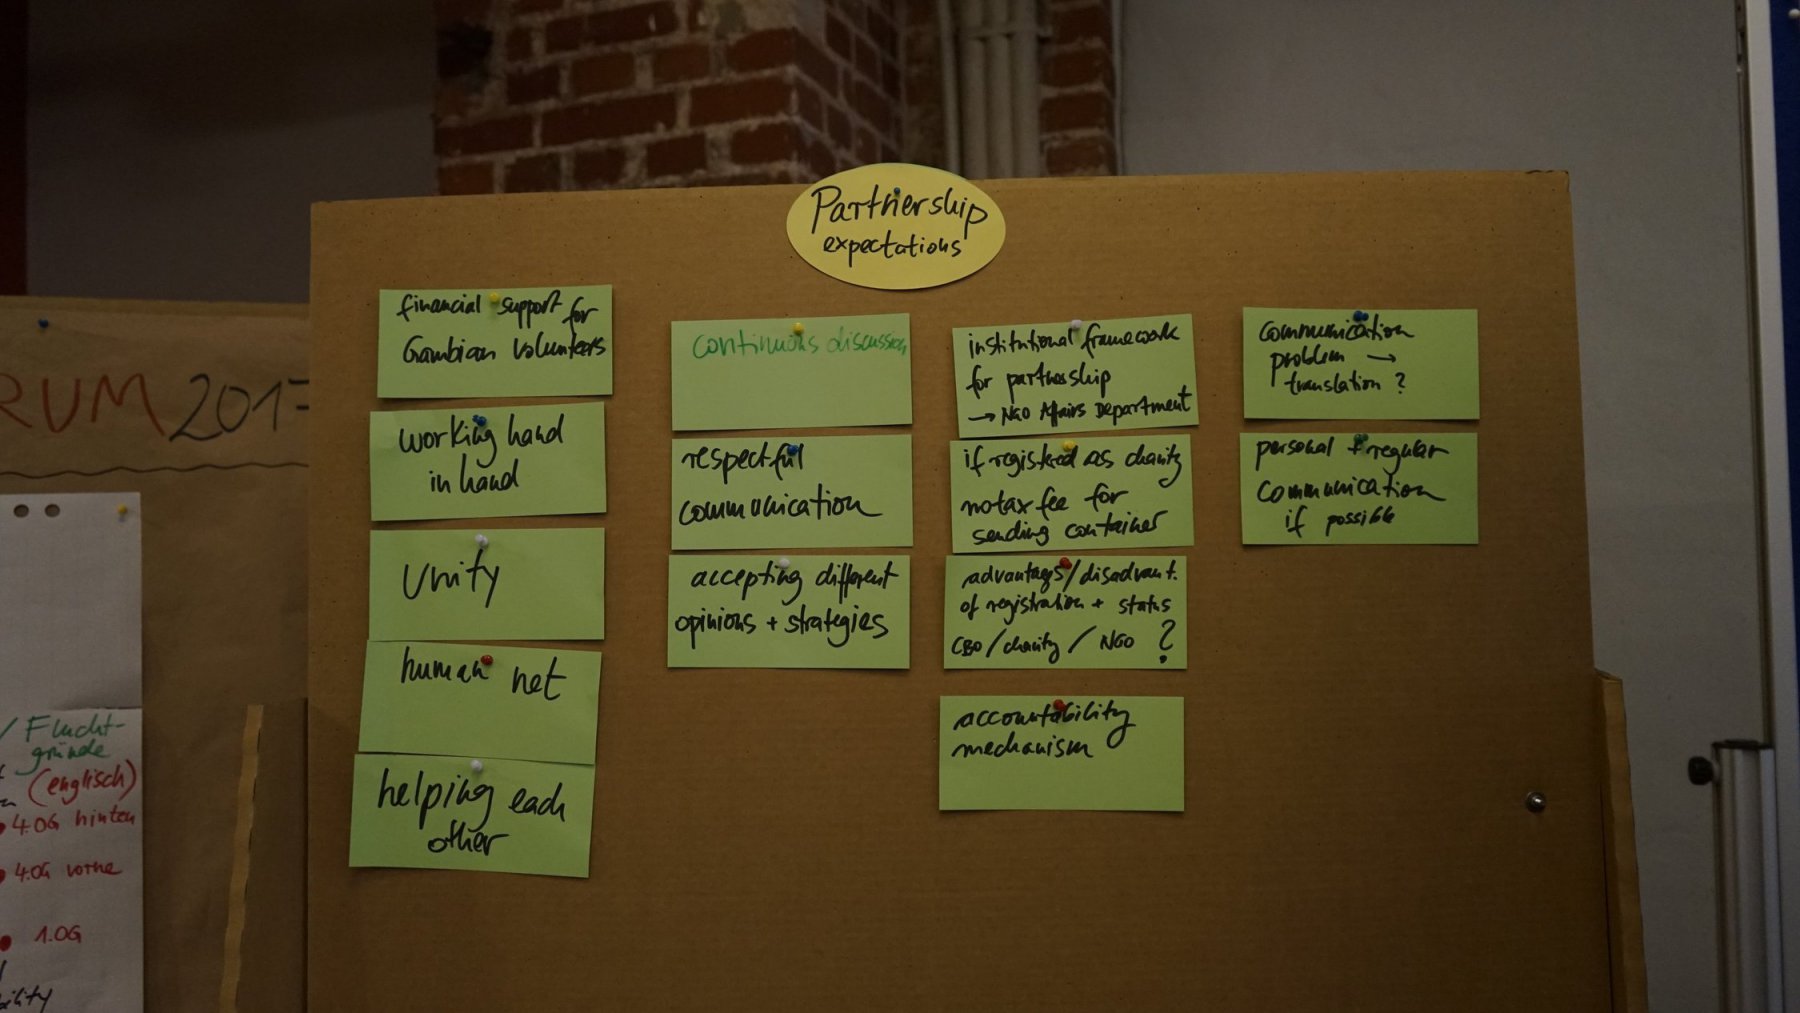 Partnership
expectations
financial support for
Gambian volunteers
working hand
in hand
Unity
human net
helping each
other
continuous discussion
respectful
communication
accepting different
opinions + strategies
institutional framework
for partnership
→ NGO Affairs Department
if registered as charity
no tax fee for
sending container
advantages/disadvant.
of registration + status
CBO/charity/NGO ?
accountability
mechanism
communication
problem →
translation ?
personal + regular
communication
if possible
RUM 2017
/ Flucht-
gründe
(englisch)
4.OG hinten
4.OG vorne
1.OG